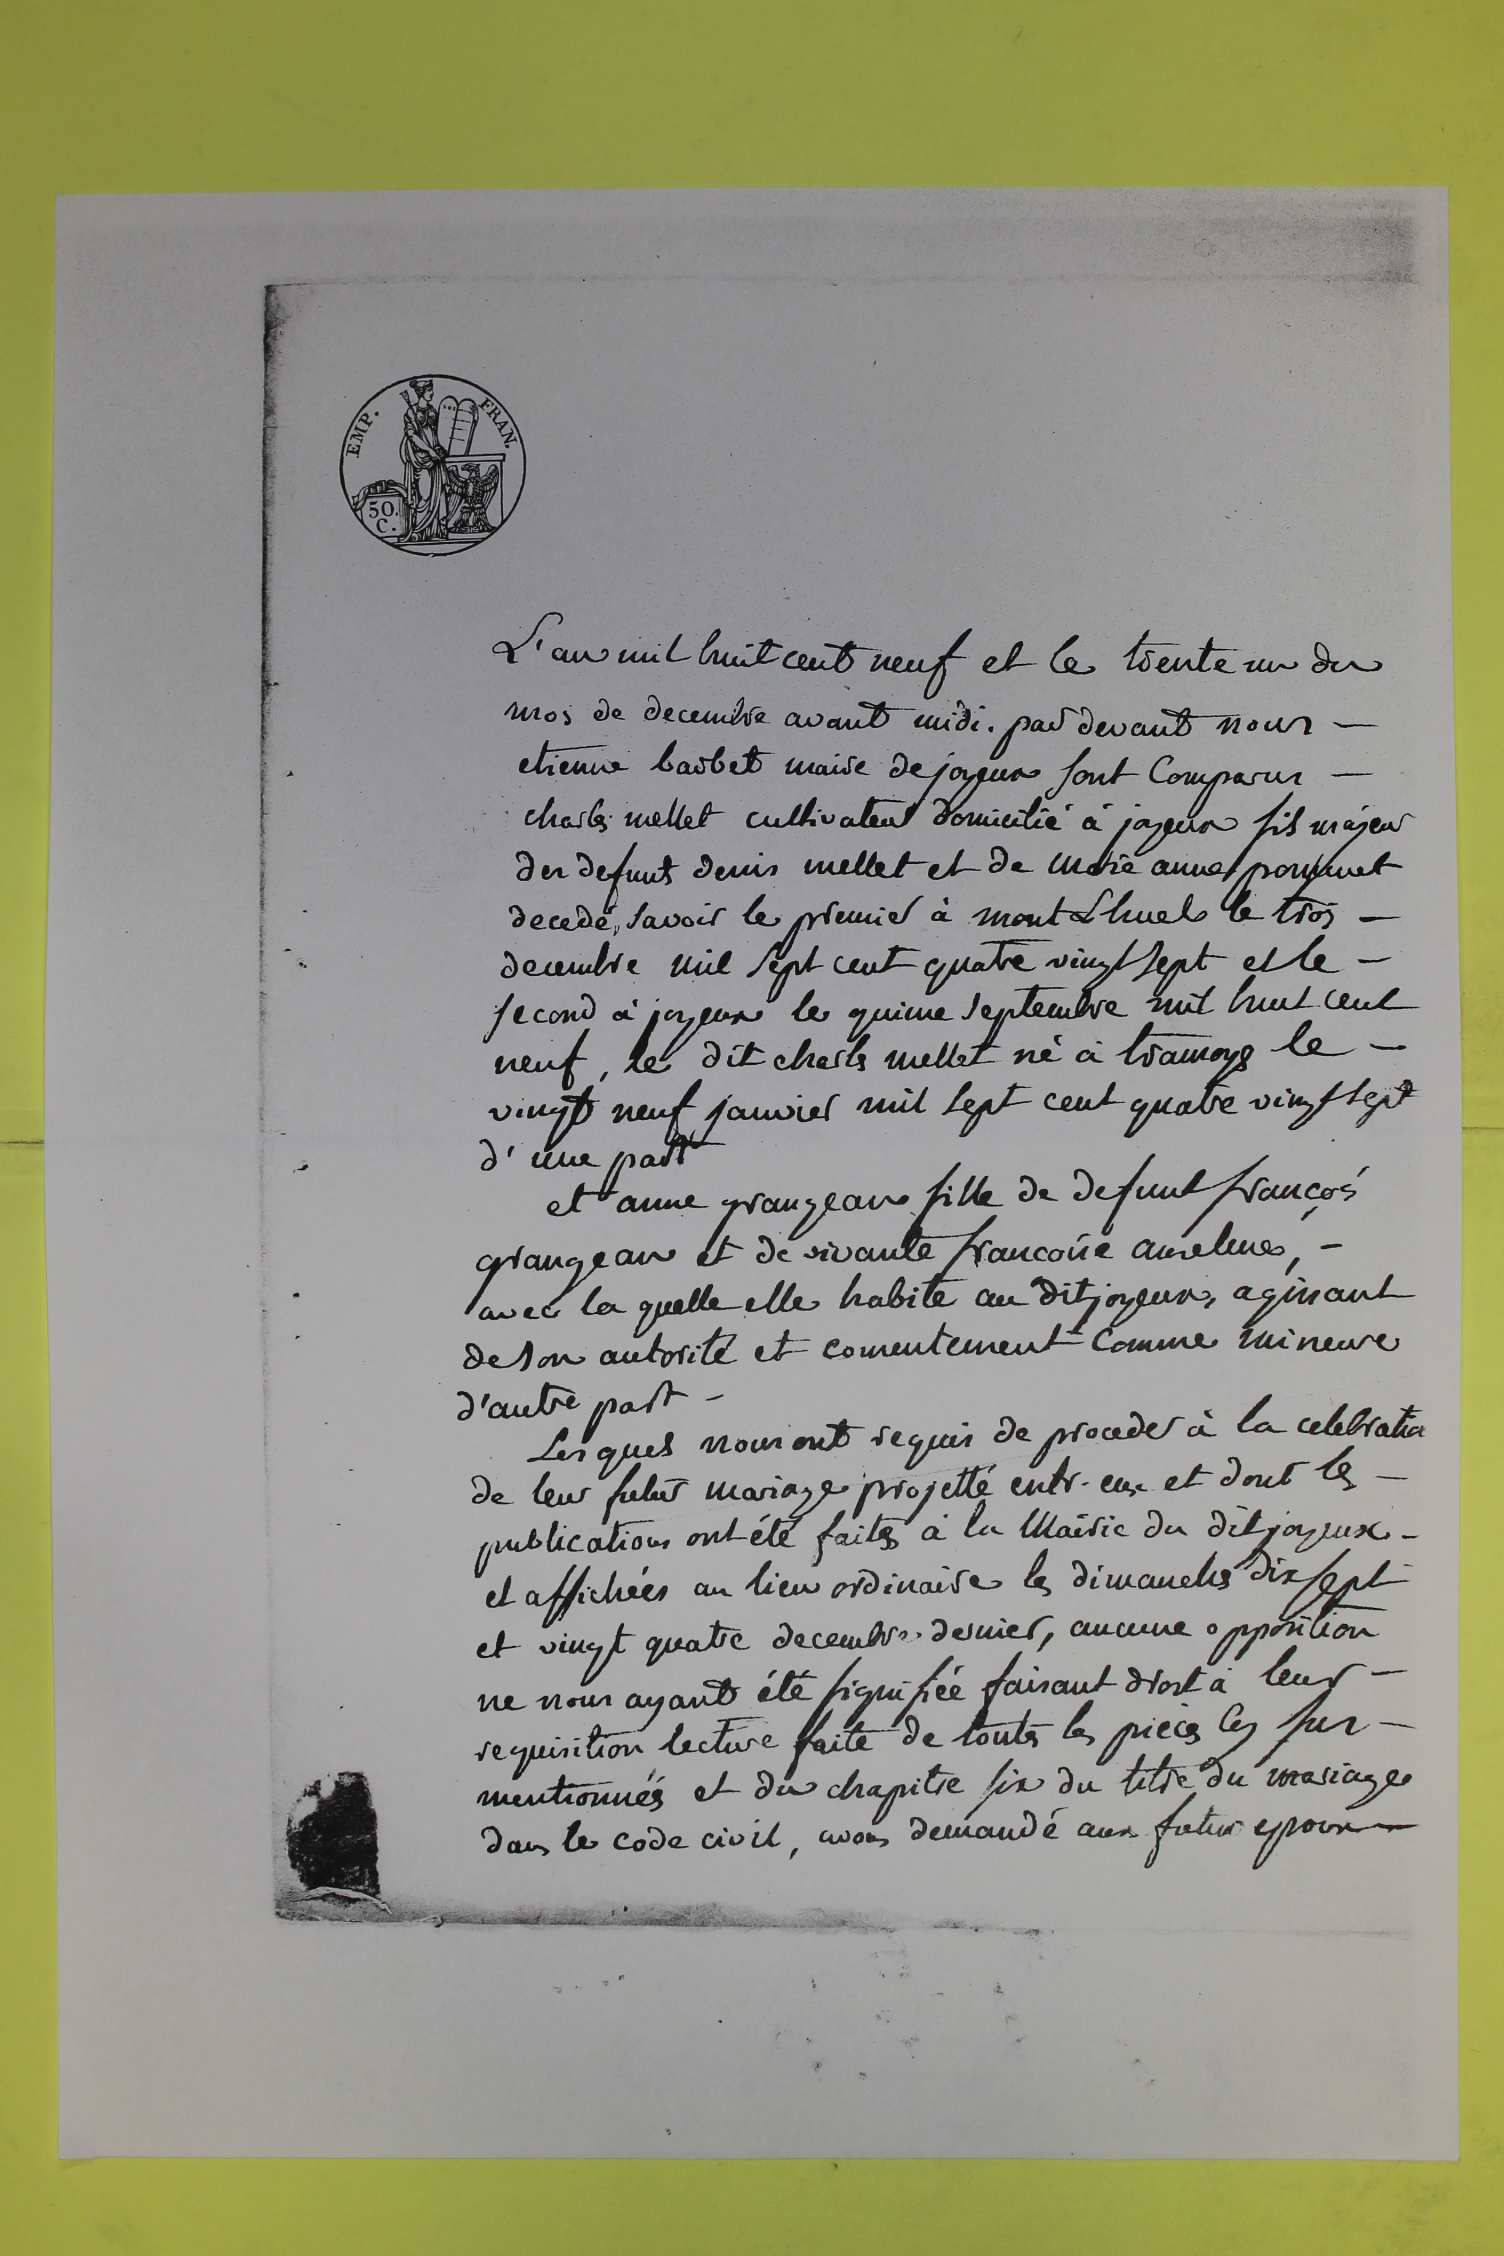 EMP. FRAN.
50.
C.
L'an mil huit cent neuf et le trente un du
mois de decembre avant midi. par devant nous –
etienne barbet maire de joyeux sont Comparus –
charles mellet cultivateur domicilié à joyeux fils majeur
des defunts denis mellet et de Marie anne
decedé, savoir le premier à mont Lhuel le trois –
decembre mil sept cent quatre vingt sept et le –
second à joyeux le quinze septembre mil huit cent
neuf, le dit charles mellet né à tramoye le –
vingt neuf janvier mil sept cent quatre vingt sept
d'une part
et anne grangean fille de defunt françois
grangean et de vivante francoise anselme, –
avec la quelle elle habite au dit joyeux, agissant
de son autorité et consentement comme mineure
d'autre part –
Lesquels nous ont requis de proceder à la celebration
de leur futur mariage projetté entr-eux et dont les –
publications ont été faites à la Mairie du dit joyeux –
et affichées au lieu ordinaire les dimanches dix sept
et vingt quatre decembre dernier, aucune opposition
ne nous ayant été signifiée faisant droit à leur –
requisition lecture faite de toutes les pieces cy sus –
mentionnés et du chapitre six du titre du mariage
dans le code civil, avons demandé aux futur epoux –